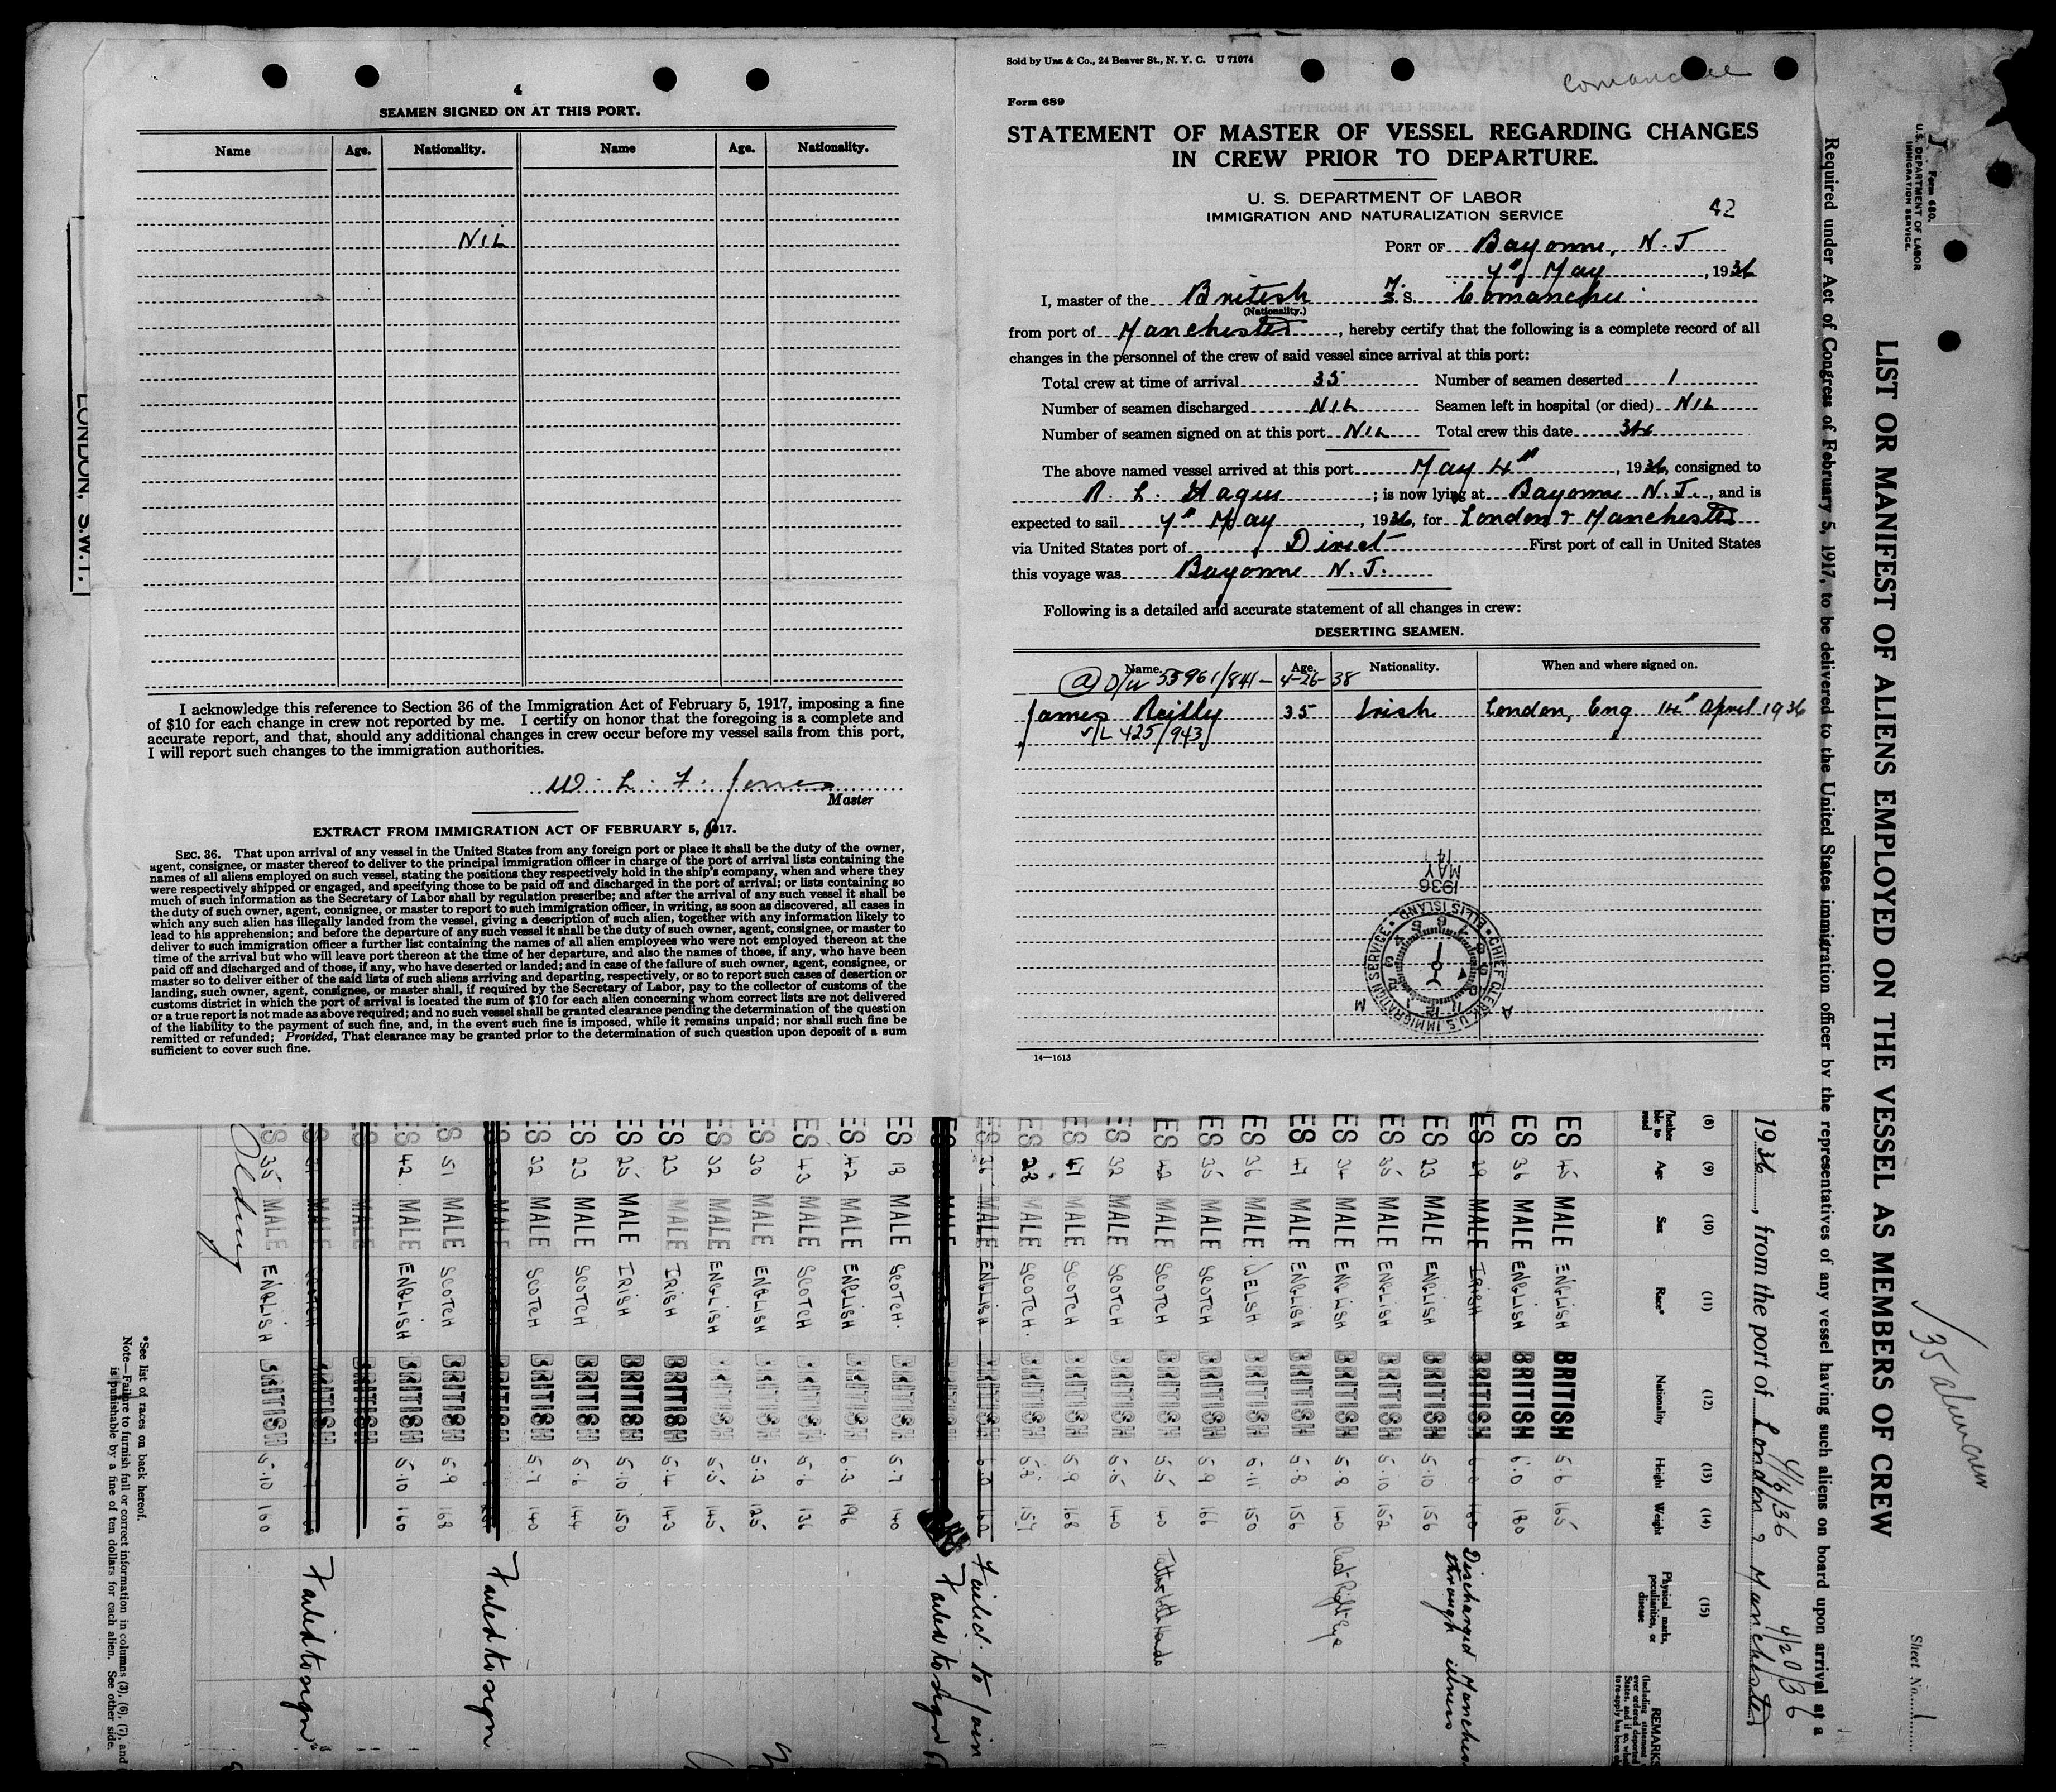 4
SEAMEN SIGNED ON AT THIS PORT.
Name Age. Nationality. Name Age. Nationality.
NIL
I acknowledge this reference to Section 36 of the Immigration Act of February 5, 1917, imposing a fine
of $10 for each change in crew not reported by me. I certify on honor that the foregoing is a complete and
accurate report, and that, should any additional changes in crew occur before my vessel sails from this port,
I will report such changes to the immigration authorities.
W. L. F. Jones
Master
EXTRACT FROM IMMIGRATION ACT OF FEBRUARY 5, 1917.
SEC. 36. That upon arrival of any vessel in the United States from any foreign port or place it shall be the duty of the owner,
agent, consignee, or master thereof to deliver to the principal immigration officer in charge of the port of arrival lists containing the
names of all aliens employed on such vessel, stating the positions they respectively hold in the ship's company, when and where they
were respectively shipped or engaged, and specifying those to be paid off and discharged in the port of arrival; or lists containing so
much of such information as the Secretary of Labor shall by regulation prescribe; and after the arrival of any such vessel it shall be
the duty of such owner, agent, consignee, or master to report to such immigration officer, in writing, as soon as discovered, all cases in
which any such alien has illegally landed from the vessel, giving a description of such alien, together with any information likely to
lead to his apprehension; and before the departure of any such vessel it shall be the duty of such owner, agent, consignee, or master to
deliver to such immigration officer a further list containing the names of all alien employees who were not employed thereon at the
time of the arrival but who will leave port thereon at the time of her departure, and also the names of those, if any, who have been
paid off and discharged and of those, if any, who have deserted or landed; and in case of the failure of such owner, agent, consignee, or
master so to deliver either of the said lists of such aliens arriving and departing, respectively, or so to report such cases of desertion or
landing, such owner, agent, consignee, or master shall, if required by the Secretary of Labor, pay to the collector of customs of the
customs district in which the port of arrival is located the sum of $10 for each alien concerning whom correct lists are not delivered
or a true report is not made as above required; and no such vessel shall be granted clearance pending the determination of the question
of the liability to the payment of such fine, and, in the event such fine is imposed, while it remains unpaid; nor shall such fine be
remitted or refunded; Provided, That clearance may be granted prior to the determination of such question upon deposit of a sum
sufficient to cover such fine.
LONDON, S.W.1.
Sold by Unz & Co., 24 Beaver St., N. Y. C. U 71074
Comanchee
Form 689
STATEMENT OF MASTER OF VESSEL REGARDING CHANGES
IN CREW PRIOR TO DEPARTURE.
U. S. DEPARTMENT OF LABOR
IMMIGRATION AND NATURALIZATION SERVICE
42
PORT OF Bayonne, N.J
7th May, 1936
I, master of the British M. S. Comanchee
(Nationality.)
from port of Manchester, hereby certify that the following is a complete record of all
changes in the personnel of the crew of said vessel since arrival at this port:
Total crew at time of arrival 35 Number of seamen deserted 1
Number of seamen discharged NIL Seamen left in hospital (or died) NIL
Number of seamen signed on at this port NIL Total crew this date 34
The above named vessel arrived at this port May 4th, 1936, consigned to
R. L. Hague; is now lying at Bayonne N.J., and is
expected to sail 7th May, 1936, for London & Manchester
via United States port of Direct First port of call in United States
this voyage was Bayonne N.J.
Following is a detailed and accurate statement of all changes in crew:
DESERTING SEAMEN.
Name. Age. Nationality. When and where signed on.
@ D/W 55961/841 - 4-26-38
James Reilly 35 Irish London, Eng 14th April 1936
V/L 425/943
1936
MAY
14
CHIEF CLERK U.S. IMMIGRATION SERVICE
ELLIS ISLAND
A M
14—1613
Form 680.
U. S. DEPARTMENT OF LABOR
IMMIGRATION SERVICE.
LIST OR MANIFEST OF ALIENS EMPLOYED ON THE VESSEL AS MEMBERS OF CREW
Required under Act of Congress of February 5, 1917, to be delivered to the United States immigration officer by the representatives of any vessel having such aliens on board upon arrival at a
Sheet No. 1
35 alien crew
4/6/36 4/20/36
1936, from the port of London & Manchester
(8) (9) (10) (11) (12) (13) (14) (15)
Age Sex Race* Nationality Height Weight Physical marks, peculiarities, or disease REMARKS
ES 45 MALE ENGLISH BRITISH 5.6 165
ES 36 MALE ENGLISH BRITISH 6.0 180
ES 29 MALE IRISH BRITISH 160 Discharged Manchester through illness
ES 23 MALE ENGLISH BRITISH 5.10 156
ES 35 MALE ENGLISH BRITISH 5.10 152
ES 34 MALE ENGLISH BRITISH 5.8 140 Cast Right Eye
ES 47 MALE ENGLISH BRITISH 5.8 156
ES 36 MALE WELSH BRITISH 5.11 150
ES 35 MALE SCOTCH BRITISH 5.9 166
ES 42 MALE SCOTCH BRITISH 5.5 140
ES 32 MALE SCOTCH BRITISH 5.6 140
ES 47 MALE SCOTCH BRITISH 5.9 168
ES 28 MALE SCOTCH. BRITISH 5.8 154
ES 36 MALE ENGLISH BRITISH 6.0 160 Failed to join
MALE Failed to sign
ES 18 MALE SCOTCH. BRITISH 5.7 140
ES 42 MALE ENGLISH BRITISH 6.3 196
ES 43 MALE SCOTCH BRITISH 5.6 136
ES 30 MALE ENGLISH BRITISH 5.3 125
ES 32 MALE ENGLISH BRITISH 5.5 145
ES 23 MALE IRISH BRITISH 5.4 143
ES 25 MALE IRISH BRITISH 5.10 150
ES 23 MALE SCOTCH BRITISH 5.6 144
ES 32 MALE SCOTCH BRITISH 5.7 140
MALE BRITISH Failed to sign
ES 51 MALE SCOTCH BRITISH 5.9 168
ES 42 MALE ENGLISH BRITISH 5.10 160
MALE BRITISH
MALE SCOTCH BRITISH Failed to sign
ES 35 MALE ENGLISH BRITISH 5.10 160
*See list of races on back hereof.
Note—Failure to furnish full or correct information in columns (3), (6), (7), and
is punishable by a fine of ten dollars for each alien. See other side.